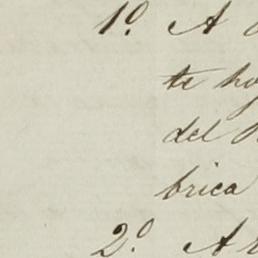 1º. A
te ho
del
brica
2º. A